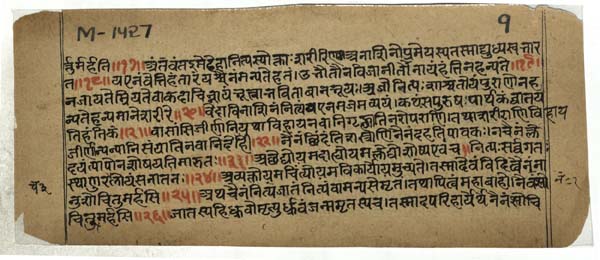 M-1427
9
तुमर्हति ॥१७॥ अंतवंत इमे देहा नित्यस्योक्ताः शरीरिणः अनाशिनोप्रमेयस्य तस्माद्युध्यस्व भार
त ॥१८॥ य एनं वेत्ति हंतारं यश्चैनं मन्यते हतं। उभौ तौ न विजानीतो नायं हंति न हन्यते ॥१९॥
न जायते म्रियते वा कदाचिन्नायं भूत्वा भविता वा न भूयः। अजो नित्यः शाश्वतोयं पुराणो न ह
न्यते हन्यमाने शरीरे ॥२०॥ वेदाविनाशिनं नित्यं य एनमजमव्ययं। कथं स पुरुषः पार्थ कं घातय
ति हंति कं ॥२१॥ वासांसि जीर्णानि यथा विहाय नवानि गृह्णाति नरोपराणि। तथा शरीराणि विहाय
जीर्णान्यन्यानि संयाति नवानि देही ॥२२॥ नैनं छिंदंति शस्त्राणि नैनं दहति पावकः। न चैनं क्ले
दयंत्यापो न शोषयति मारुतः ॥२३॥ अच्छेद्योयमदाह्योयमक्लेद्योशोष्य एव च। नित्यः सर्वगतः
स्थाणुरचलोयं सनातनः ॥२४॥ अव्यक्तोयमचिंत्योयमविकार्योयमुच्यते। तस्मादेवं विदित्वैनं ना
नुशोचितुमर्हसि ॥२५॥ अथ चैनं नित्यजातं नित्यं वा मन्यसे मृतं। तथापि त्वं महाबाहो नैवं शो
चितुमर्हसि ॥२६॥ जातस्य हि ध्रुवो मृत्युर्ध्रुवं जन्म मृतस्य च। तस्मादपरिहार्येर्थे न त्वं शोचि